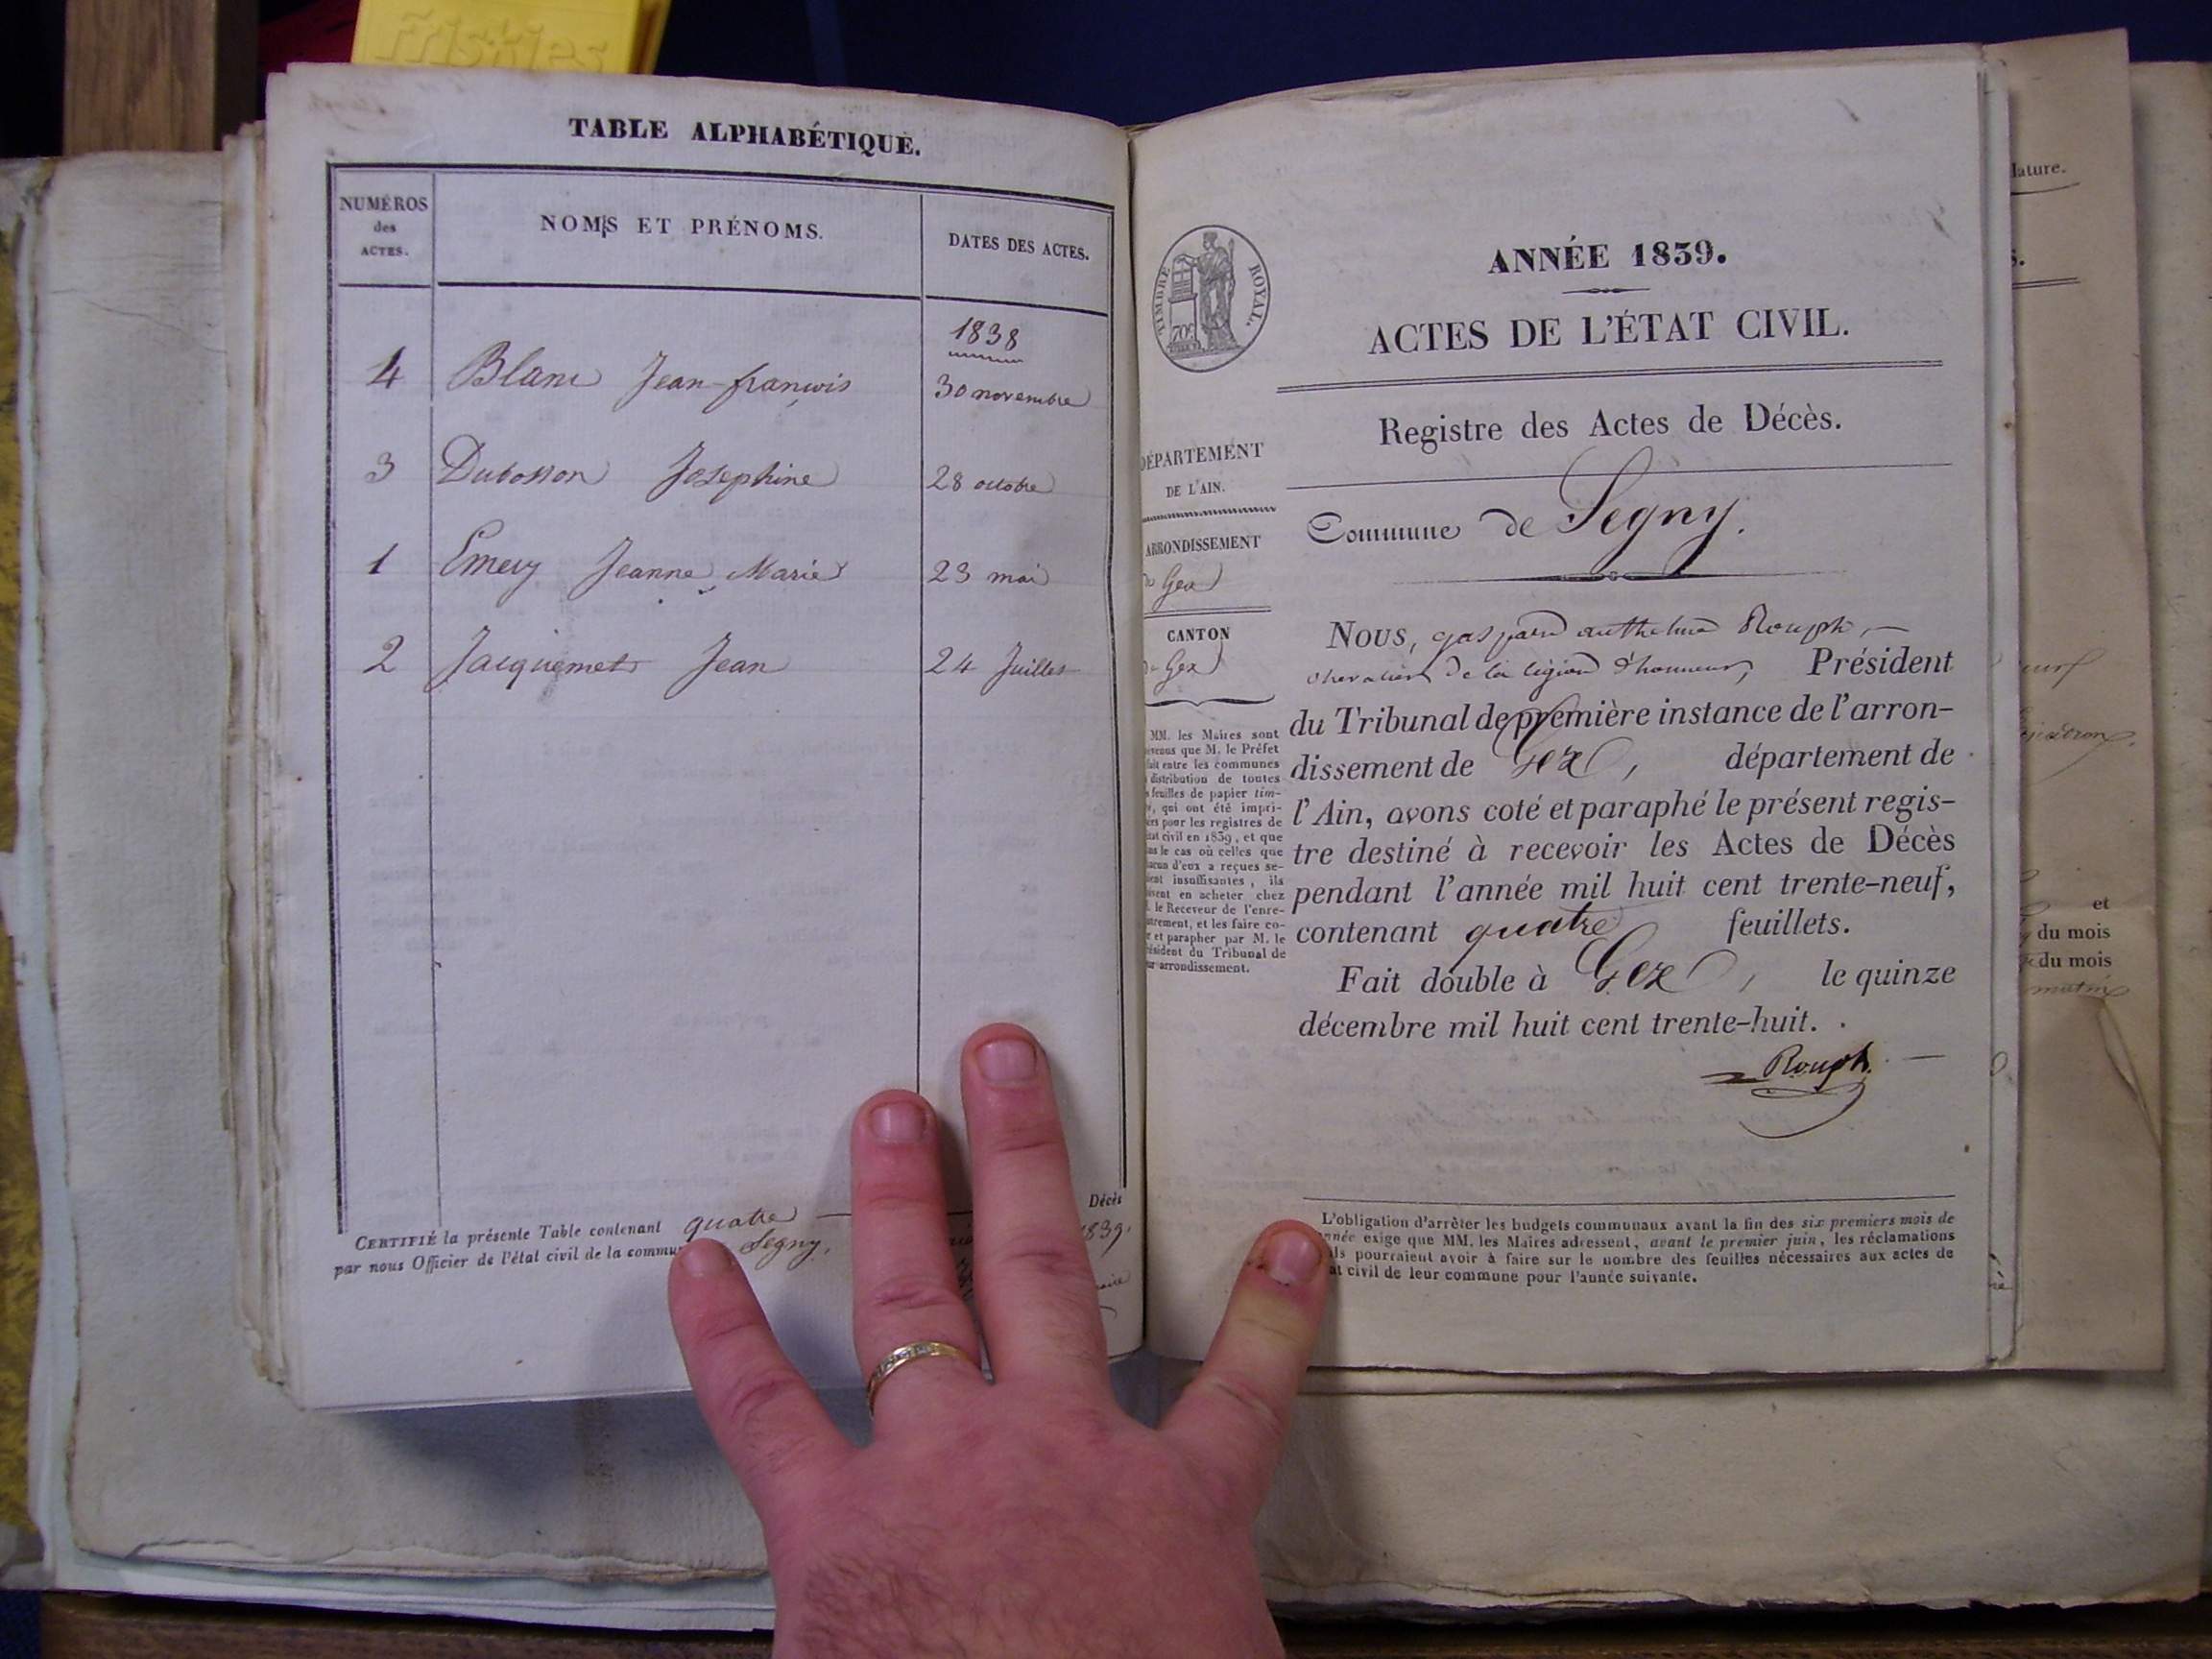 friskies
TABLE ALPHABÉTIQUE.
NUMÉROS
des
ACTES.
NOMS ET PRÉNOMS.
DATES DES ACTES.
1838
4 Blanc Jean-françois 30 novembre
3 Dubosson Josephine 28 octobre
1 Emery Jeanne Marie 23 mai
2 Jacquemet Jean 24 Juillet
Décès
CERTIFIÉ la présente Table contenant quatre
par nous Officier de l'état civil de la commu Segny, 1839.
maire
TIMBRE ROYAL.
70c
ANNÉE 1839.
ACTES DE L'ÉTAT CIVIL.
Registre des Actes de Décès.
Commune de Segny.
DÉPARTEMENT
DE L'AIN.
ARRONDISSEMENT
de Gex
CANTON
de Gex
MM. les Maires sont
M. le Préfet
fait entre les communes
distribution de toutes
feuilles de papier tim-
qui ont été impri-
pour les registres de
état civil en 1839, et que
le cas où celles que
d'eux a reçues se-
insuffisantes, ils
en acheter chez
le Receveur de l'enre-
et les faire co-
et parapher par M. le
Président du Tribunal de
arrondissement.
Nous, gaspard anthelme Rouph,
chevalier de la légion d'honneur, Président
du Tribunal de première instance de l'arron-
dissement de Gex, département de
l'Ain, avons coté et paraphé le présent regis-
tre destiné à recevoir les Actes de Décès
pendant l'année mil huit cent trente-neuf,
contenant quatre feuillets.
Fait double à Gex, le quinze
décembre mil huit cent trente-huit.
Rouph.
L'obligation d'arrêter les budgets communaux avant la fin des six premiers mois de
année exige que MM. les Maires adressent, avant le premier juin, les réclamations
ils pourraient avoir à faire sur le nombre des feuilles nécessaires aux actes de
civil de leur commune pour l'année suivante.
et
du mois
du mois
matin